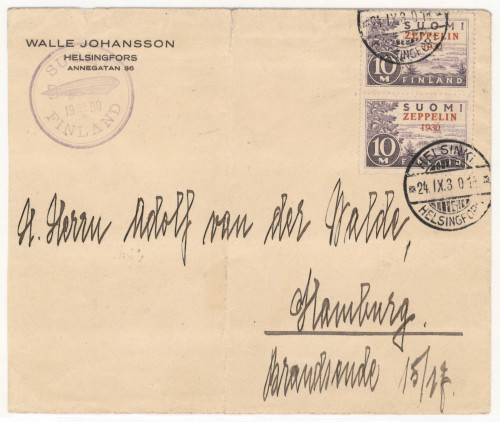 WALLE JOHANSSON
HELSINGFORS
ANNEGATAN 36
SUOMI
1930
FINLAND
SUOMI
ZEPPELIN
1930
10 M
FINLAND
SUOMI
ZEPPELIN
1930
10 M
HELSINKI
24.IX.3 0.1
HELSINGFORS
HELSINKI
24.IX.3 0.1
HELSINGFORS
Herrn Adolf van der Walde,
Hamburg.
Brandsende 15/17.